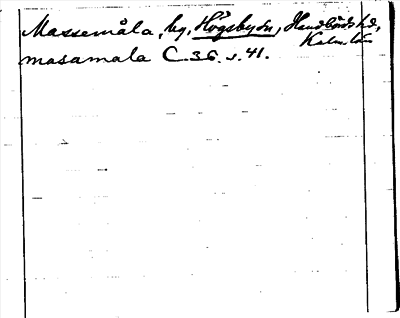 Massemåla, by, Högsby sn, Handbörds hd,
Kalm. län
masamala C. 36. s. 41.